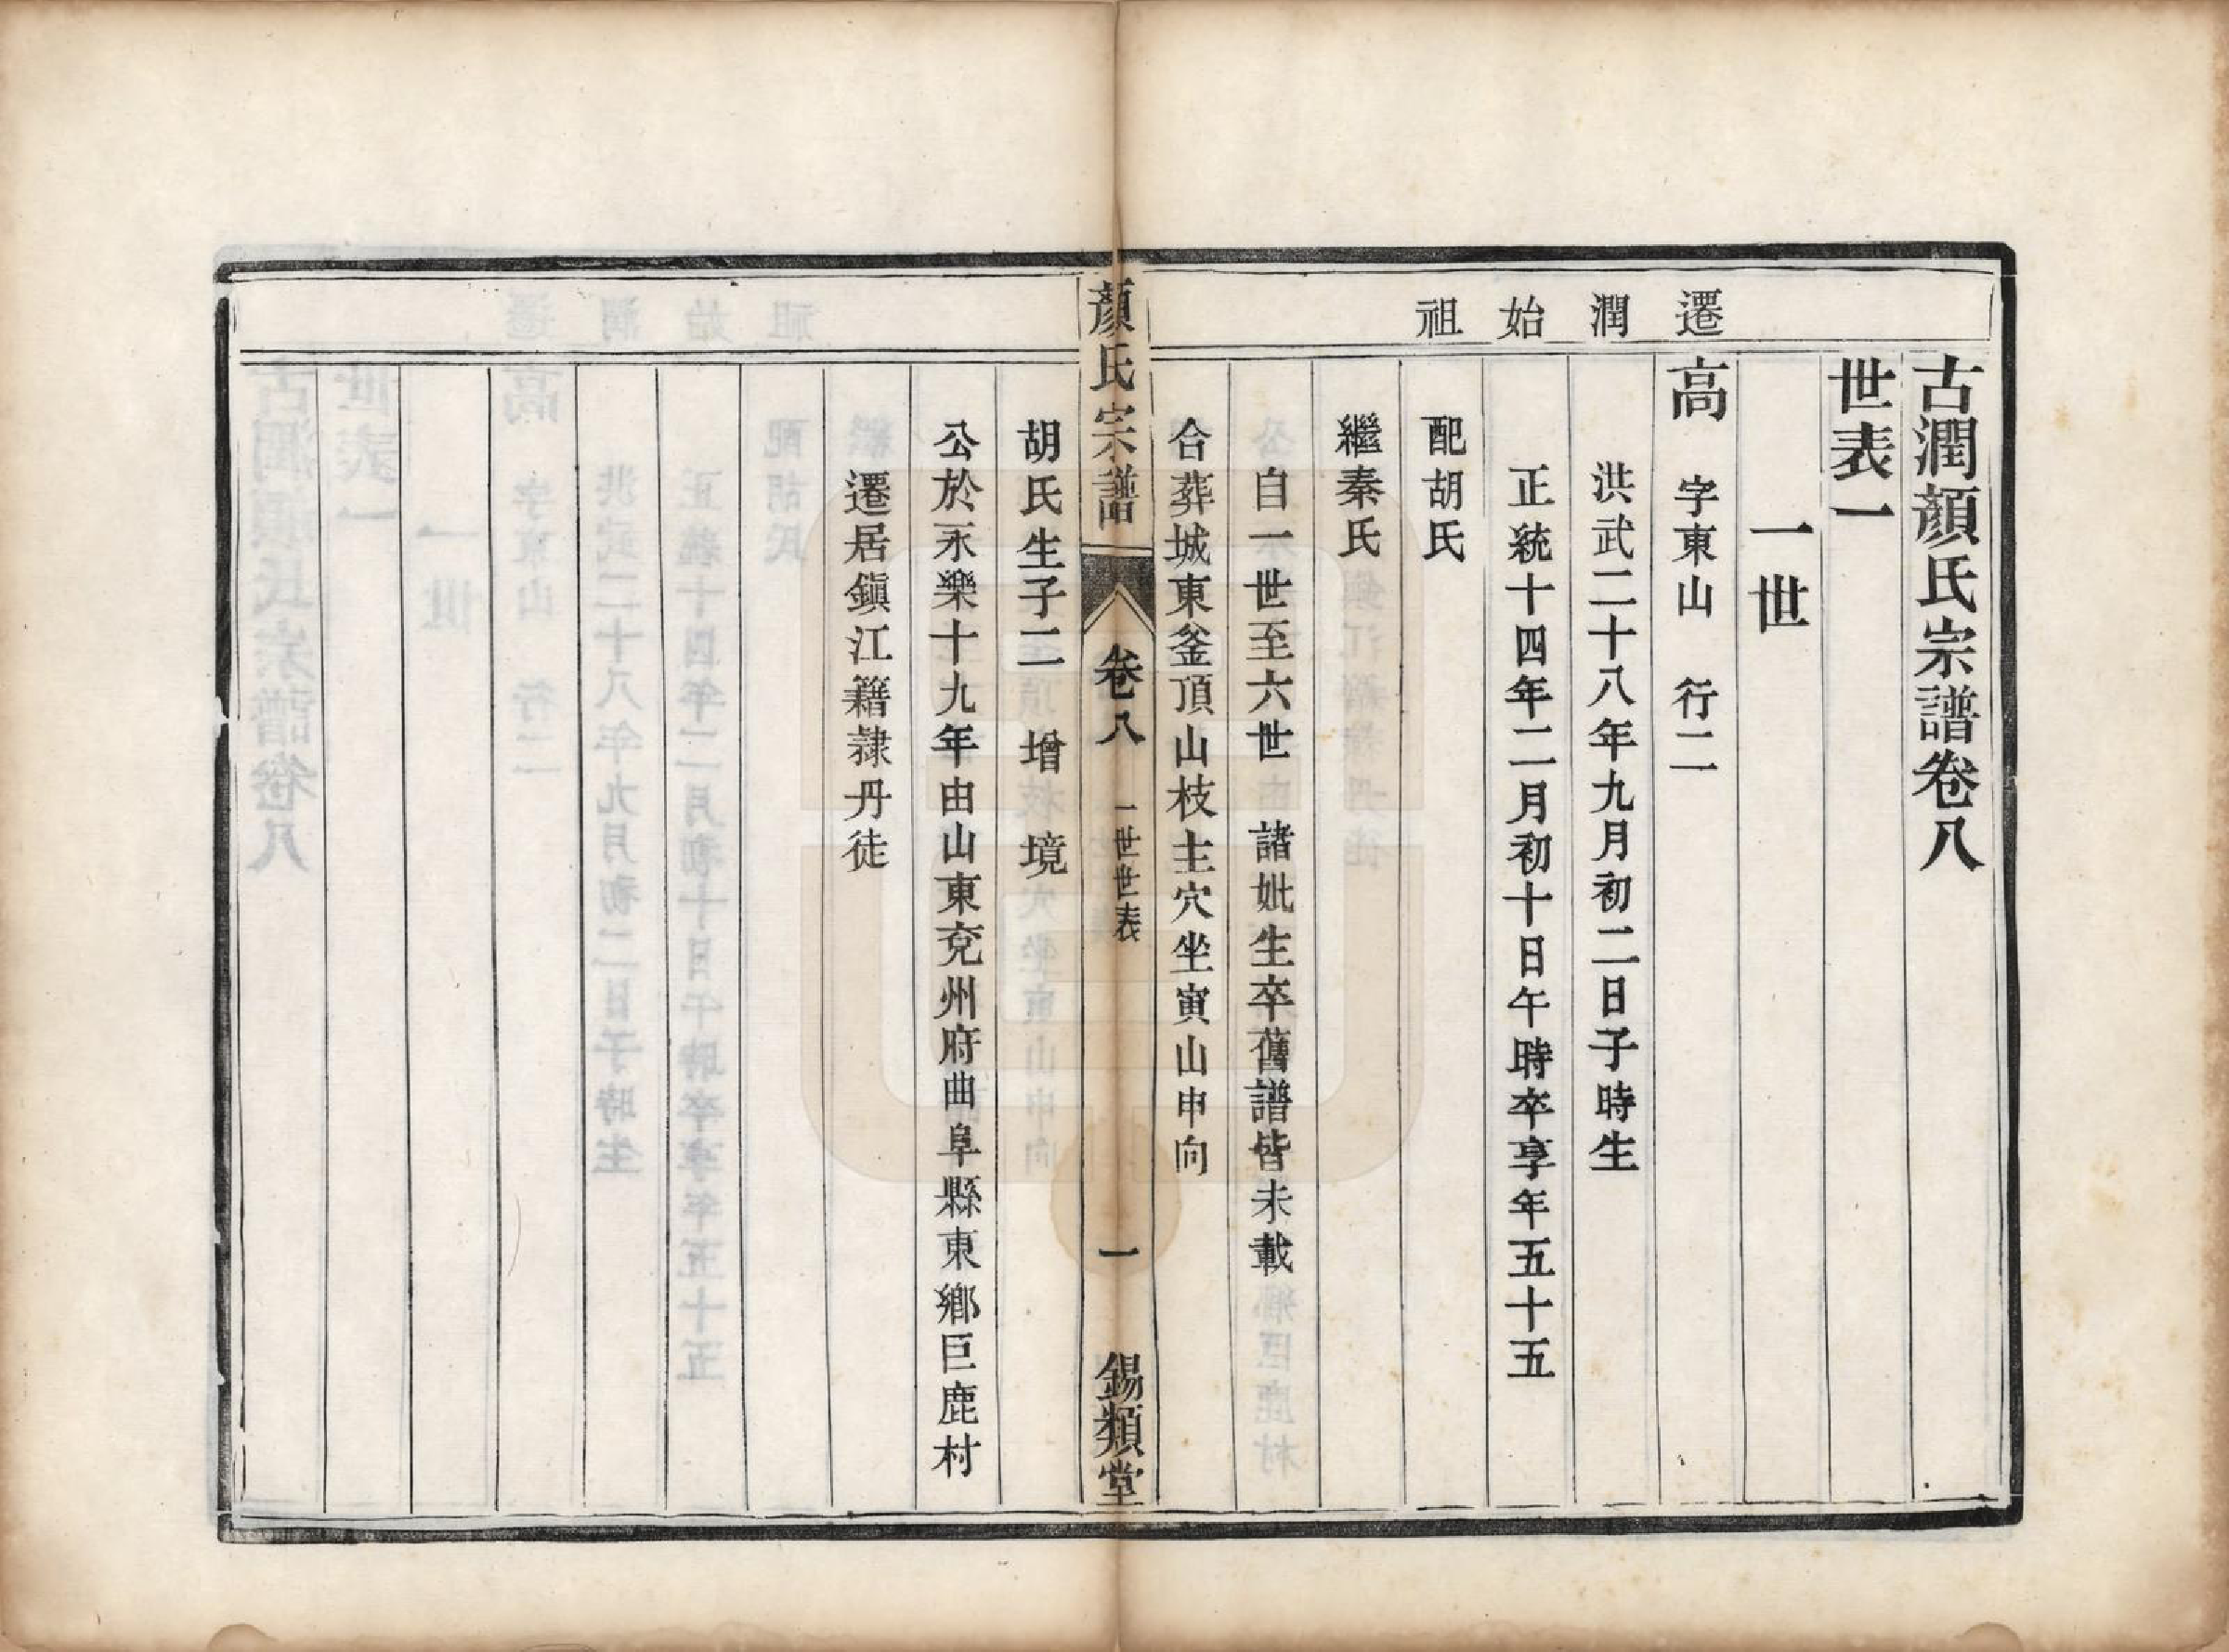 古潤顏氏宗譜卷八
世表一
一世
遷潤始祖
高 字東山 行二
洪武二十八年九月初二日子時生
正統十四年二月初十日午時卒享年五十五
配胡氏
繼秦氏
自一世至六世 諸妣生卒舊譜皆未載
合葬城東釜頂山枝主穴坐寅山申向
顏氏宗譜 卷八 一世世表 一 錫類堂
胡氏生子二 增 境
公於永樂十九年由山東兗州府曲阜縣東鄉巨鹿村
遷居鎭江籍隸丹徒